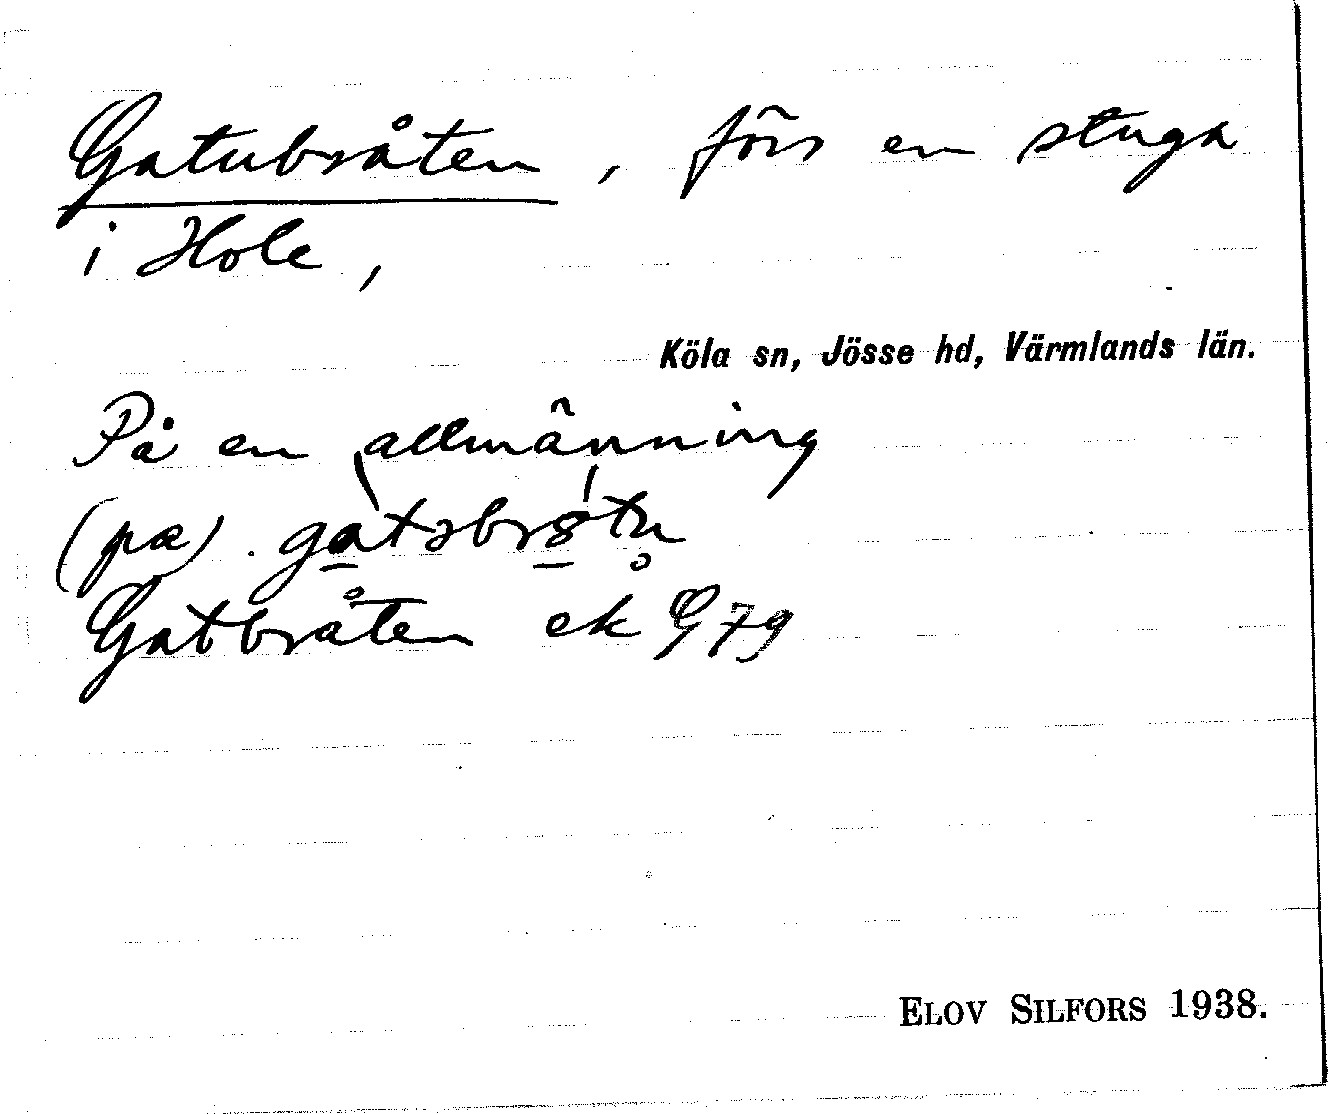 Gatubråten, förs en stuga
i Hole,
Köla sn, Jösse hd, Värmlands län.
På en allmänning
(pa). gatəbr8tn̥
Gatbråten ek G79
ELOV SILFORS 1938.